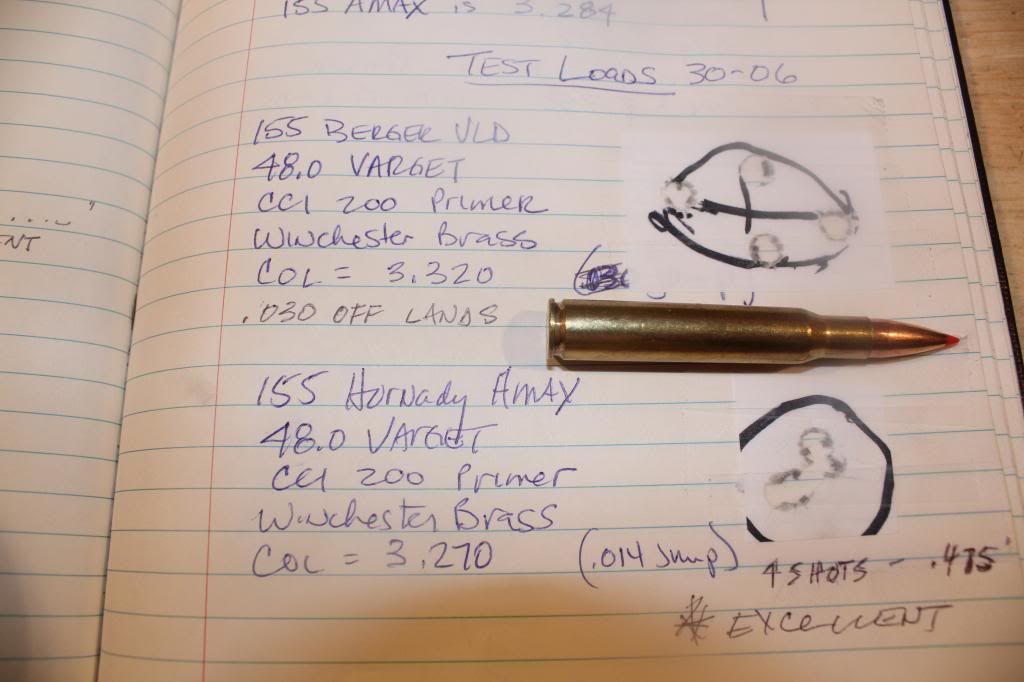 155 AMAX is 3.284
TEST LOADS 30-06
155 BERGER VLD
48.0 VARGET
CCI 200 Primer
Winchester Brass
COL = 3.320
.030 OFF LANDS
155 Hornady AMAX
48.0 VARGET
CCI 200 Primer
Winchester Brass
COL = 3.270 (.014 Jump)
4 SHOTS - .475"
* EXCELLENT